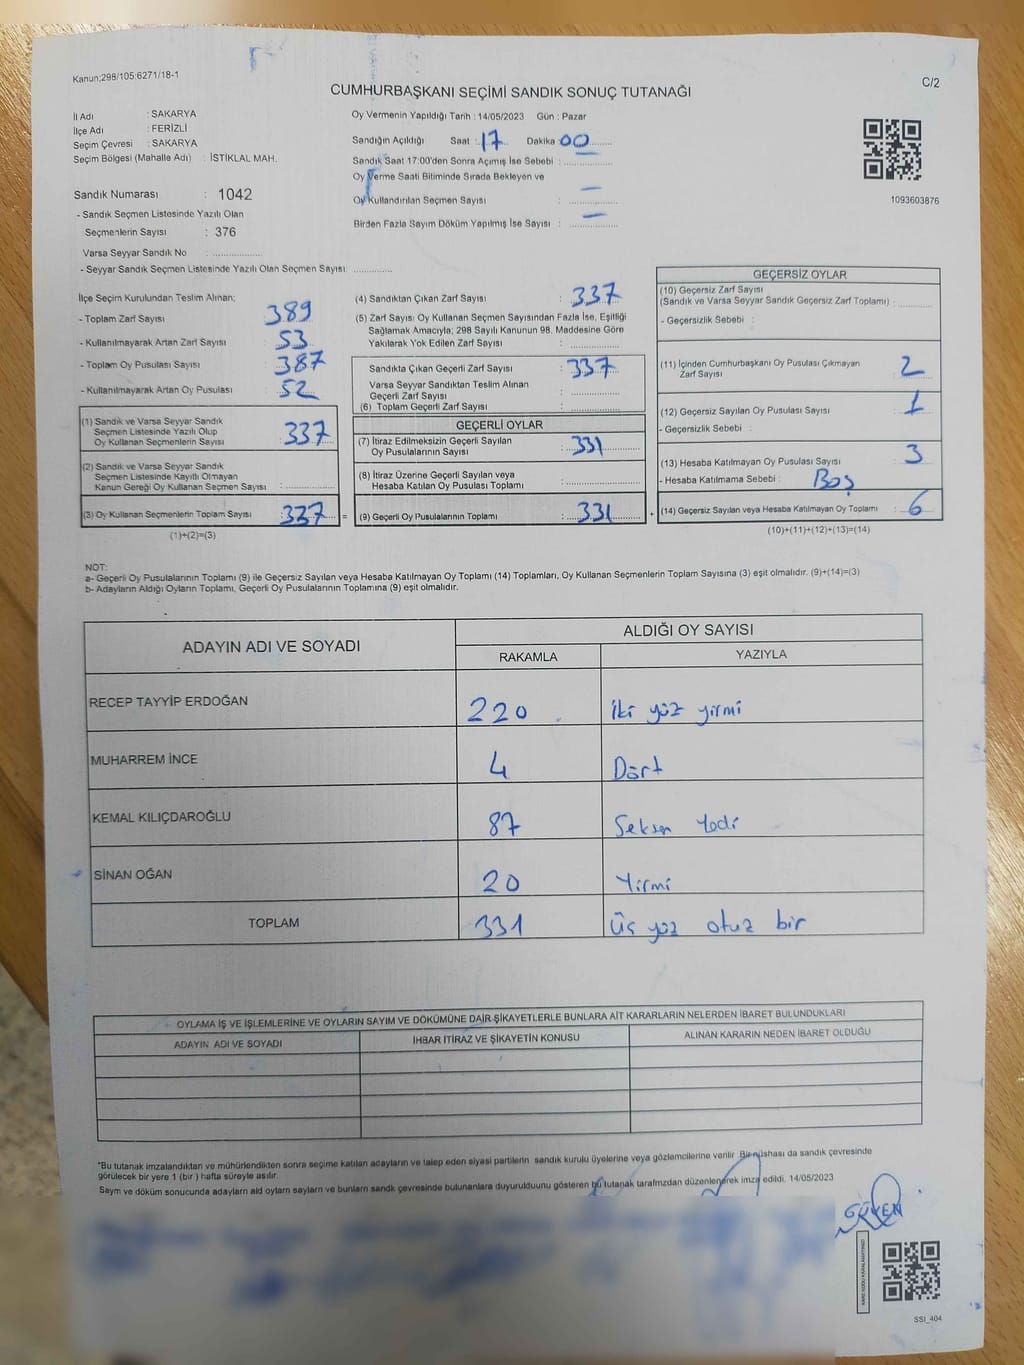 Kanun;298/105;6271/18-1
CUMHURBAŞKANI SEÇİMİ SANDIK SONUÇ TUTANAĞI
C/2
İl Adı : SAKARYA
İlçe Adı : FERİZLİ
Seçim Çevresi : SAKARYA
Seçim Bölgesi (Mahalle Adı) : İSTİKLAL MAH.
Oy Vermenin Yapıldığı Tarih : 14/05/2023 Gün : Pazar
Sandığın Açıldığı Saat : 17 Dakika : 00
Sandık Saat 17:00'den Sonra Açımış İse Sebebi :
Oy Verme Saati Bitiminde Sırada Bekleyen ve
Oy Kullandırılan Seçmen Sayısı : —
Birden Fazla Sayım Döküm Yapılmış İse Sayısı : —
1093603876
Sandık Numarası : 1042
- Sandık Seçmen Listesinde Yazılı Olan
Seçmenlerin Sayısı : 376
Varsa Seyyar Sandık No :
- Seyyar Sandık Seçmen Listesinde Yazılı Olan Seçmen Sayısı:
İlçe Seçim Kurulundan Teslim Alınan;
- Toplam Zarf Sayısı : 389
- Kullanılmayarak Artan Zarf Sayısı : 53
- Toplam Oy Pusulası Sayısı : 387
- Kullanılmayarak Artan Oy Pusulası : 52
(1) Sandık ve Varsa Seyyar Sandık
Seçmen Listesinde Yazılı Olup
Oy Kullanan Seçmenlerin Sayısı : 337
(2) Sandık ve Varsa Seyyar Sandık
Seçmen Listesinde Kayıtlı Olmayan
Kanun Gereği Oy Kullanan Seçmen Sayısı :
(3) Oy Kullanan Seçmenlerin Toplam Sayısı : 337 =
(1)+(2)=(3)
(4) Sandıktan Çıkan Zarf Sayısı : 337
(5) Zarf Sayısı Oy Kullanan Seçmen Sayısından Fazla İse, Eşitliği
Sağlamak Amacıyla; 298 Sayılı Kanunun 98. Maddesine Göre
Yakılarak Yok Edilen Zarf Sayısı :
Sandıkta Çıkan Geçerli Zarf Sayısı : 337
Varsa Seyyar Sandıktan Teslim Alınan
Geçerli Zarf Sayısı :
(6) Toplam Geçerli Zarf Sayısı :
GEÇERLİ OYLAR
(7) İtiraz Edilmeksizin Geçerli Sayılan
Oy Pusulalarının Sayısı : 331
(8) İtiraz Üzerine Geçerli Sayılan veya
Hesaba Katılan Oy Pusulası Toplamı :
(9) Geçerli Oy Pusulalarının Toplamı : 331 +
GEÇERSİZ OYLAR
(10) Geçersiz Zarf Sayısı
(Sandık ve Varsa Seyyar Sandık Geçersiz Zarf Toplamı) :
- Geçersizlik Sebebi :
(11) İçinden Cumhurbaşkanı Oy Pusulası Çıkmayan
Zarf Sayısı : 2
(12) Geçersiz Sayılan Oy Pusulası Sayısı : 1
- Geçersizlik Sebebi :
(13) Hesaba Katılmayan Oy Pusulası Sayısı : 3
- Hesaba Katılmama Sebebi : Boş
(14) Geçersiz Sayılan veya Hesaba Katılmayan Oy Toplamı : 6
(10)+(11)+(12)+(13)=(14)
NOT:
a- Geçerli Oy Pusulalarının Toplamı (9) ile Geçersiz Sayılan veya Hesaba Katılmayan Oy Toplamı (14) Toplamları, Oy Kullanan Seçmenlerin Toplam Sayısına (3) eşit olmalıdır. (9)+(14)=(3)
b- Adayların Aldığı Oyların Toplamı, Geçerli Oy Pusulalarının Toplamına (9) eşit olmalıdır.
ADAYIN ADI VE SOYADI
ALDIĞI OY SAYISI
RAKAMLA YAZIYLA
RECEP TAYYİP ERDOĞAN 220 iki yüz yirmi
MUHARREM İNCE 4 Dört
KEMAL KILIÇDAROĞLU 87 Seksen Yedi
SİNAN OĞAN 20 Yirmi
TOPLAM 331 Üç yüz otuz bir
OYLAMA İŞ VE İŞLEMLERİNE VE OYLARIN SAYIM VE DÖKÜMÜNE DAİR ŞİKAYETLERLE BUNLARA AİT KARARLARIN NELERDEN İBARET BULUNDUKLARI
ADAYIN ADI VE SOYADI İHBAR İTİRAZ VE ŞİKAYETİN KONUSU ALINAN KARARIN NEDEN İBARET OLDUĞU
*Bu tutanak imzalandıktan ve mühürlendikten sonra seçime katılan adayların ve talep eden siyasi partilerin sandık kurulu üyelerine veya gözlemcilerine verilir. Bir nüshası da sandık çevresinde
görülecek bir yere 1 (bir ) hafta süreyle asılır.
Sayım ve döküm sonucunda adayların ald oyların sayların ve bunların sandk çevresinde bulunanlara duyurulduunu gösteren bu tutanak tarafmzdan düzenlenerek imza edildi. 14/05/2023
GÜVEN
SSI_404